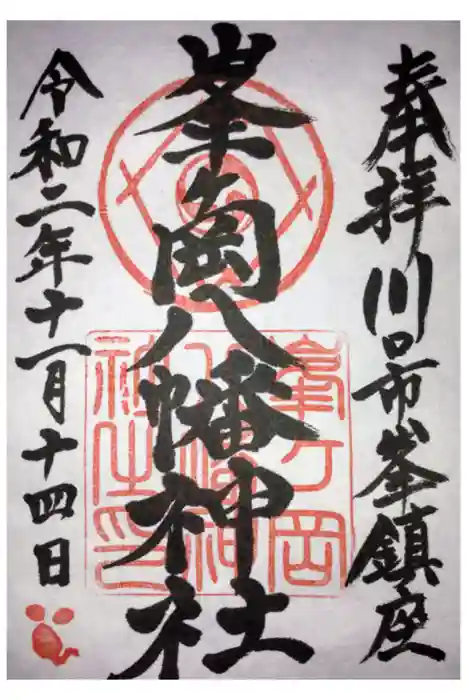 奉拝 川口市峯鎮座
峯ヶ岡八幡神社
令和二年十一月十四日
峯ヶ岡
八幡神
社之印